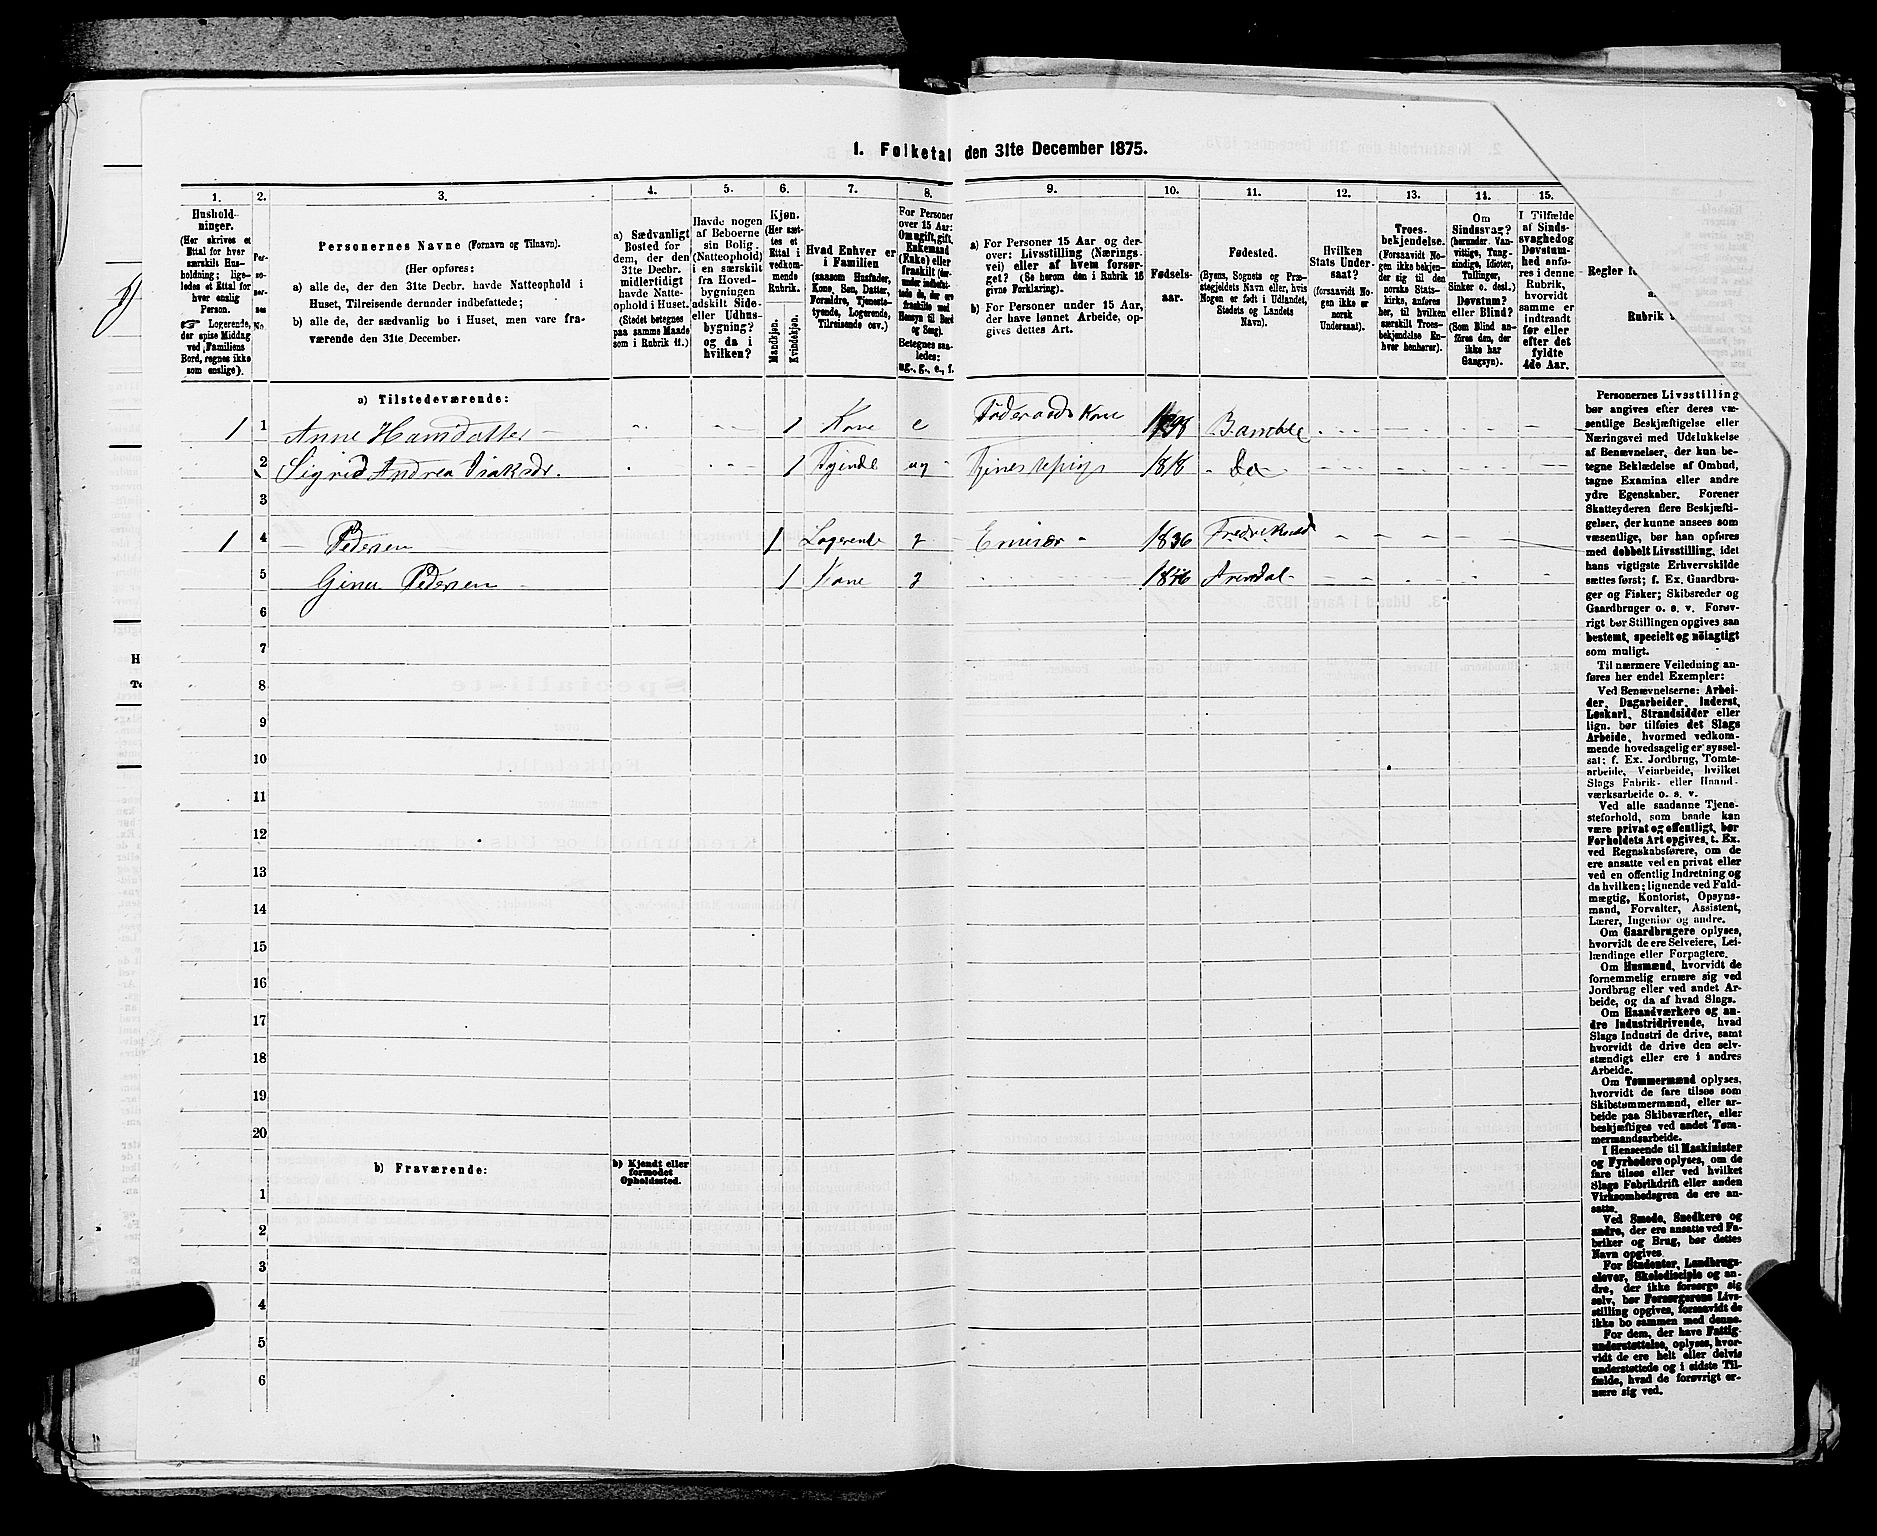 1. Folketal den 31te December 1875.
1.
2.
3.
4.
5.
6.
7.
8.
9.
10.
11.
12.
13.
14.
15.
Hushold-
ninger.
(Her skrives et
Ettal for hver
særskilt Hus-
holdning; lige-
ledes et Ettal for
hver enslig
Person.
Logerende,
der spise Middag
ved Familiens
Bord, regnes ikke
som enslige).
Personernes Navne (Fornavn og Tilnavn).
(Her opføres:
a) alle de, der den 31te Decbr. havde Natteophold i
Huset, Tilreisende derunder indbefattede;
b) alle de, der sædvanlig bo i Huset, men vare fra-
værende den 31te December.
a) Sædvanligt
Bosted for
dem, der den
31te Decbr.
midlertidigt
havde Natte-
ophold i Huset.
(Stedet betegnes
paa samme Maade
som i Rubrik 11.)
Havde nogen
af Beboerne
sin Bolig
(Natteophold)
i en særskilt
fra Hoved-
bygningen
adskilt Side-
eller Udhus-
bygning?
og da i
hvilken?
Kjøn.
(Her sæt-
tes et
Ettal i
vedkom-
mende
Rubrik.
Mandkjøn.
Kvindekjøn.
Hvad Enhver er
i Familien
(saasom Husfader,
Kone, Søn, Datter,
Forældre, Tjeneste-
tyende, Logerende,
Tilreisende osv.)
For Personer
over 15 Aar:
Om ugift, gift,
Enkemand
(Enke) eller
fraskilt
Betegnes saa-
ledes:
ug., g., e., f.
a) For Personer 15 Aar og der-
over: Livsstilling (Nærings-
vei) eller af hvem forsør-
get? (Se herom den i Rubrik 16
givne Forklaring).
b) For Personer under 15 Aar,
der have lønnet Arbeide, op-
gives dettes Art.
Fødsels-
aar.
Fødested.
(Byens, Sognets og Præ-
stegjeldets Navn eller, hvis
Nogen er født i Udlandet,
Stedets og Landets
Navn).
Hvilken
Stats Under-
saat?
(forsaavidt No-
gen ikke er
norsk
Undersaat).
Troes-
bekjendelse.
(Forsaavidt No-
gen ikke bekjen-
der sig til den
norske Stats-
kirke, anføres
her, til hvilken
særskilt Troes-
bekjendelse En-
hver henhører).
Om
Sindssvag?
(herunder Van-
vittige, Tung-
sindige, Idioter,
Tullinger,
Sinker o. desl.)
Døvstum?
eller Blind?
(Som Blind an-
føres den, der
ikke har
Gangsyn).
I Tilfælde
af Sinds-
svaghed og
Døvstum-
hed anfø-
res i denne
Rubrik,
hvorvidt
samme er
indtraadt
før eller
efter det
fyldte
4de Aar.
Regler
Rubrik
a) Tilstedeværende:
1 1 Anne Hansdatter 1 Kone e Føderaads Kone 1798 Bamble
2 Sigrid Andrea Isaksdr. 1 Tjende ug Tjenestepige 1818 Do
3
1 4 Pedersen 1 Logerende g Emisær 1836 Fredrikshald
5 Gina Pedersen 1 Kone g 1846 Arendal
6
7
8
9
10
11
12
13
14
15
16
17
18
19
20
b) Fraværende:
b) Kjendt eller
formodet
Opholdssted.
1
2
3
4
5
6
Personernes Livsstilling
bør angives efter deres væ-
sentlige Beskjæftigelse eller
Næringsvei med Udelukkelse
af Benævnelser, der kun be-
tegne Beklædelse af Ombud,
tagne Examina eller andre
ydre Egenskaber. Forener
Skatteyderen flere Beskjæfti-
gelser, der kunne ansees som
væsentlige, bør han opføres
med dobbelt Livsstilling, idet
hans vigtigste Erhvervskilde
sættes først; f. Ex. Gaardbru-
ger og Fisker; Skibsreder og
Gaardbruger o. s. v. Forøv-
rigt bør Stillingen opgives saa
bestemt, specielt og nøiagtigt
som muligt.
Til nærmere Veiledning an-
føres her endel Exempler:
Ved Benævnelserne: Arbei-
der, Dagarbeider, Inderst,
Løskarl, Strandsidder eller
lign. bør tilføies det Slags
Arbeide, hvormed vedkom-
mende hovedsagelig er syssel-
sat; f. Ex. Jordbrug, Tomte-
arbeide, Veiarbeide, hvilket
Slags Fabrik- eller Haand-
værksarbeide o. s. v.
Ved alle saadanne Tjene-
steforhold, som baade kan
være privat og offentligt, bør
Forholdets Art opgives, t. Ex.
ved Regnskabsførere, om de
ere ansatte ved en privat eller
ved en offentlig Indretning og
da hvilken; lignende ved Fuld-
mægtig, Kontorist, Opsyns-
mand, Forvalter, Assistent,
Lærer, Ingeniør og andre.
Om Gaardbrugere oplyses,
hvorvidt de ere Selveiere, Lei-
lændinge eller Forpagtere.
Om Husmænd, hvorvidt de
fornemmelig ernære sig ved
Jordbrug eller ved andet Ar-
beide, og da af hvad Slags.
Om Haandværkere og an-
dre Industridrivende, hvad
Slags Industri de drive, samt
hvorvidt de drive den selv-
stændigt eller ere i andres
Arbeide.
Om Tømmermænd oplyses,
hvorvidt de fare tilsøs som
Skibstømmermænd, eller ar-
beide paa Skibsværfter, eller
beskjæftiges ved andet Tøm-
mermandsarbeide.
I Henseende til Maskinister
og Fyrbødere oplyses, om de
fare tilsøs eller ved hvilket
Slags Fabrikdrift eller anden
Virksomhedsgren de ere an-
satte.
Ved Smede, Snedkere og
andre, der ere ansatte ved Fa-
briker og Brug, bør dettes
Navn opgives.
For Studenter, Landbrugs-
elever, Skoledisciple og an-
dre, der ikke forsørge sig
selv, bør Forsørgerens Livs-
stilling opgives, forsaavidt de
ikke bo sammen med denne.
For dem, der have Fattig-
understøttelse, oplyses, hvor-
vidt de ere helt eller delvis
understøttede og i sidste Til-
fælde, hvad de forøvrigt er-
nære sig ved.